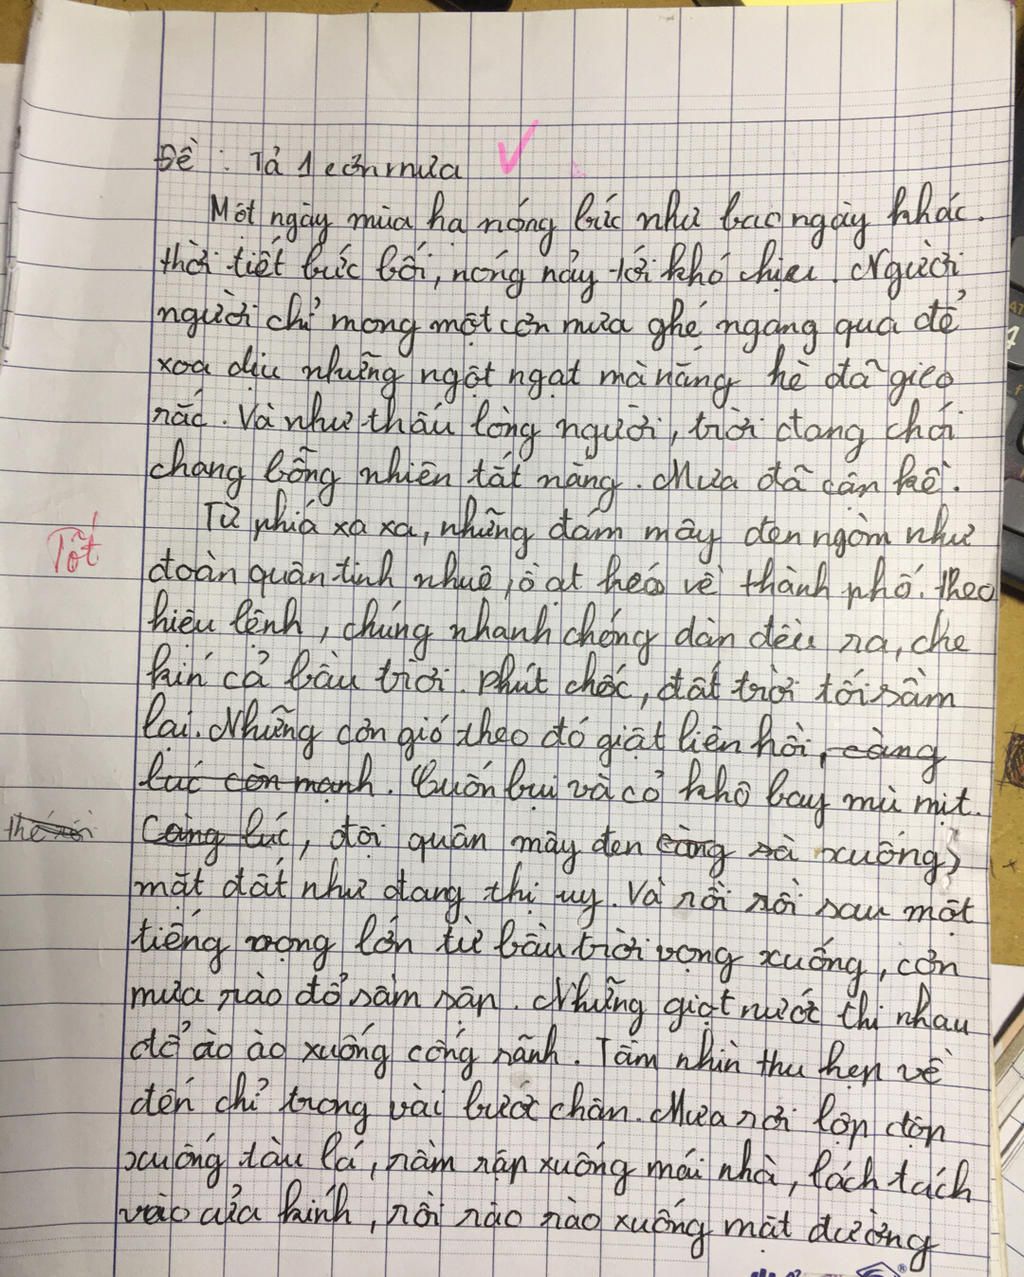 Đề : Tả 1 cơn mưa
Một ngày mùa hạ nóng bức như bao ngày khác.
thời tiết bức bối, nóng nảy tới khó chịu. Người
người chỉ mong một cơn mưa ghé ngang qua để
xoa dịu những ngột ngạt mà nắng hè đã gieo
rắc. Và như thấu lòng người, trời đang chói
chang bỗng nhiên tắt nắng. Mưa đã cận kề.
Từ phía xa xa, những đám mây đen ngòm như
Tốt
đoàn quân tinh nhuệ, ồ ạt kéo về thành phố. Theo
hiệu lệnh, chúng nhanh chóng dàn đều ra, che
kín cả bầu trời. Phút chốc, đất trời tối sầm
lại. Những cơn gió theo đó giật liên hồi, càng
lúc còn mạnh. Cuốn bụi và cỏ khô bay mù mịt.
thế rồi
Càng lúc, đội quân mây đen càng sà xuống,
mặt đất như đang thị uy. Và rồi rồi sau một
tiếng vọng lớn từ bầu trời vọng xuống, cơn
mưa rào đổ sầm sập. Những giọt nước thi nhau
đổ ào ào xuống cống rãnh. Tầm nhìn thu hẹp về
đến chỉ trong vài bước chân. Mưa rơi lộp độp
xuống tàu lá, rầm rập xuống mái nhà, lách tách
vào cửa kính, rồi rào rào xuống mặt đường